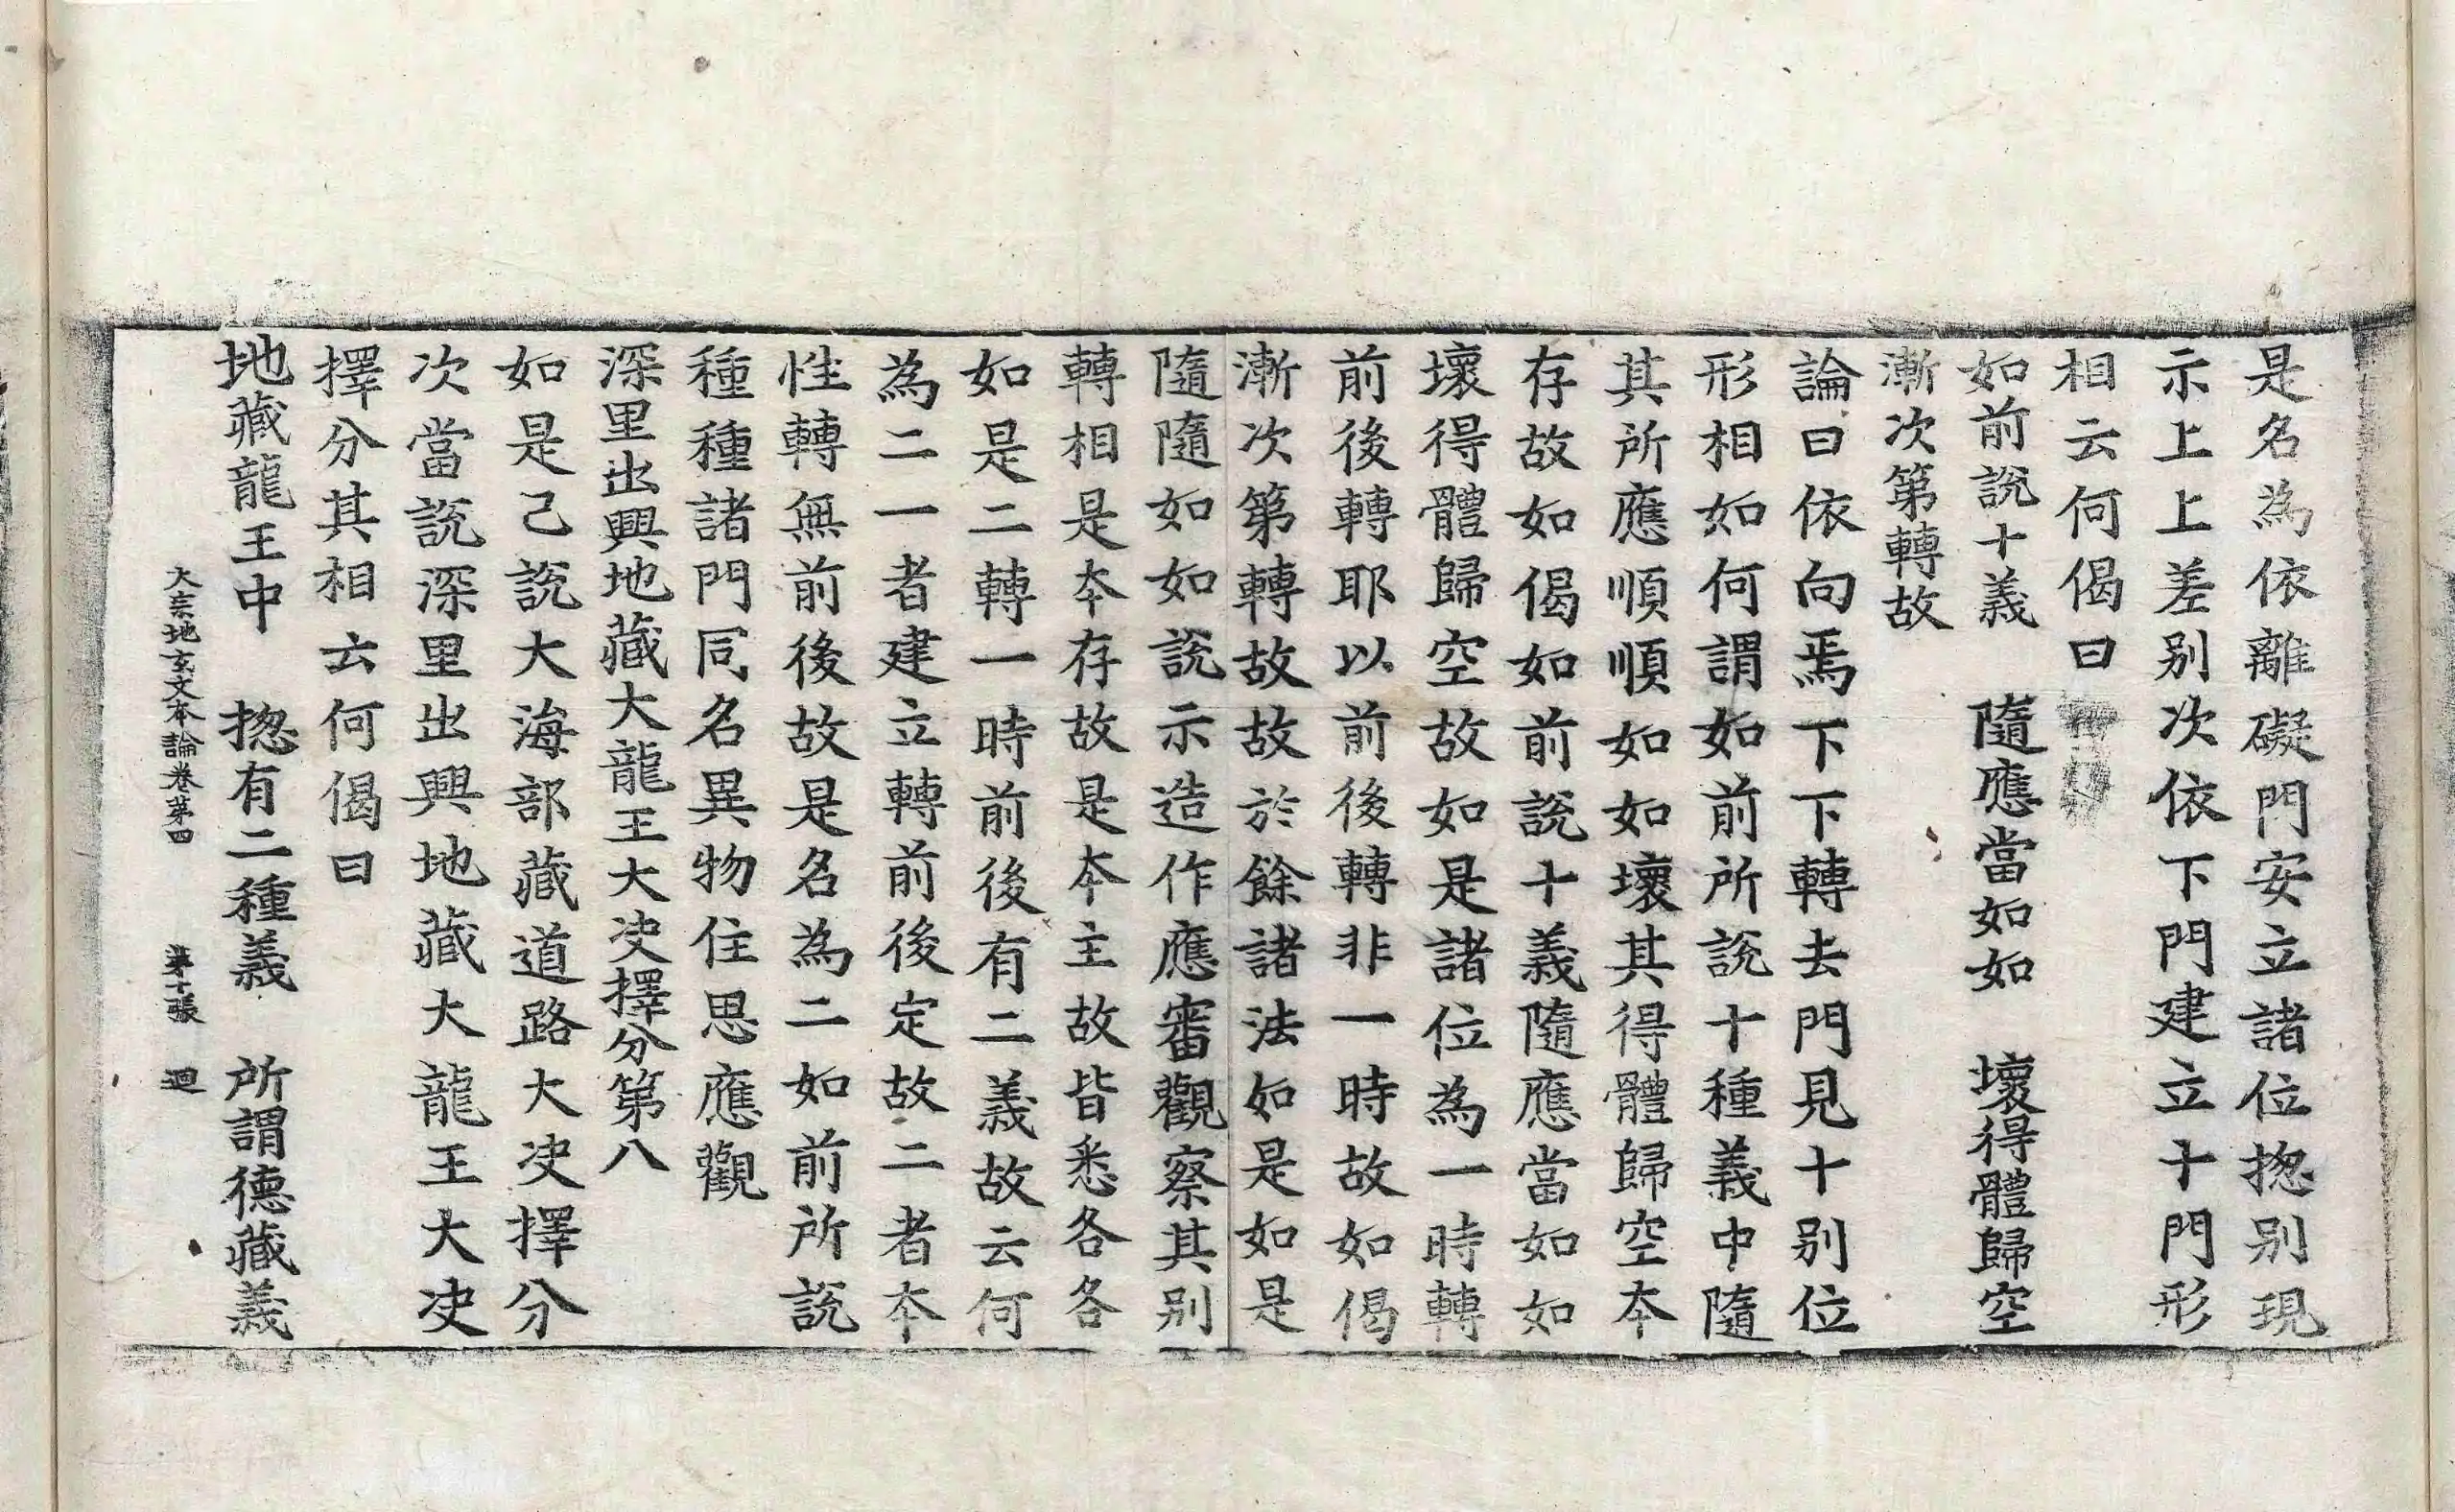 是名為依離礙門安立諸位揔别現
示上上差别次依下門建立十門形
相云何偈曰
如前說十義　隨應當如如　壞得體歸空
漸次第轉故
論曰依向焉下下轉去門見十别位
形相如何謂如前所說十種義中隨
其所應順順如如壞其得體歸空夲
存故如偈如前說十義隨應當如如
壞得體歸空故如是諸位為一時轉
前後轉耶以前後轉非一時故如偈
漸次第轉故故於餘諸法如是如是
隨隨如如說示造作應審觀察其别
轉相是夲存故是夲主故皆悉各各
如是二轉一時前後有二義故云何
為二一者建立轉前後定故二者夲
性轉無前後故是名為二如前所說
種種諸門同名異物住思應觀
深里出興地藏大龍王大决擇分第八
如是己說大海部藏道路大决擇分
次當說深里出興地藏大龍王大决
擇分其相云何偈曰
地藏龍王中　揔有二種義　所謂德藏義
大宗地玄文本論卷第四　第十張　迴